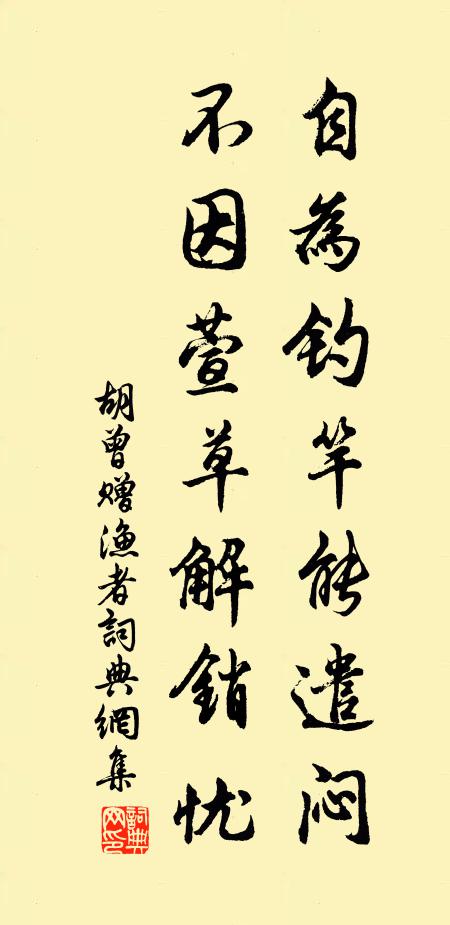 自為釣竿能遣闷
不因萱草解銷忧
胡曾贈漁者詞典網集
詞典网印